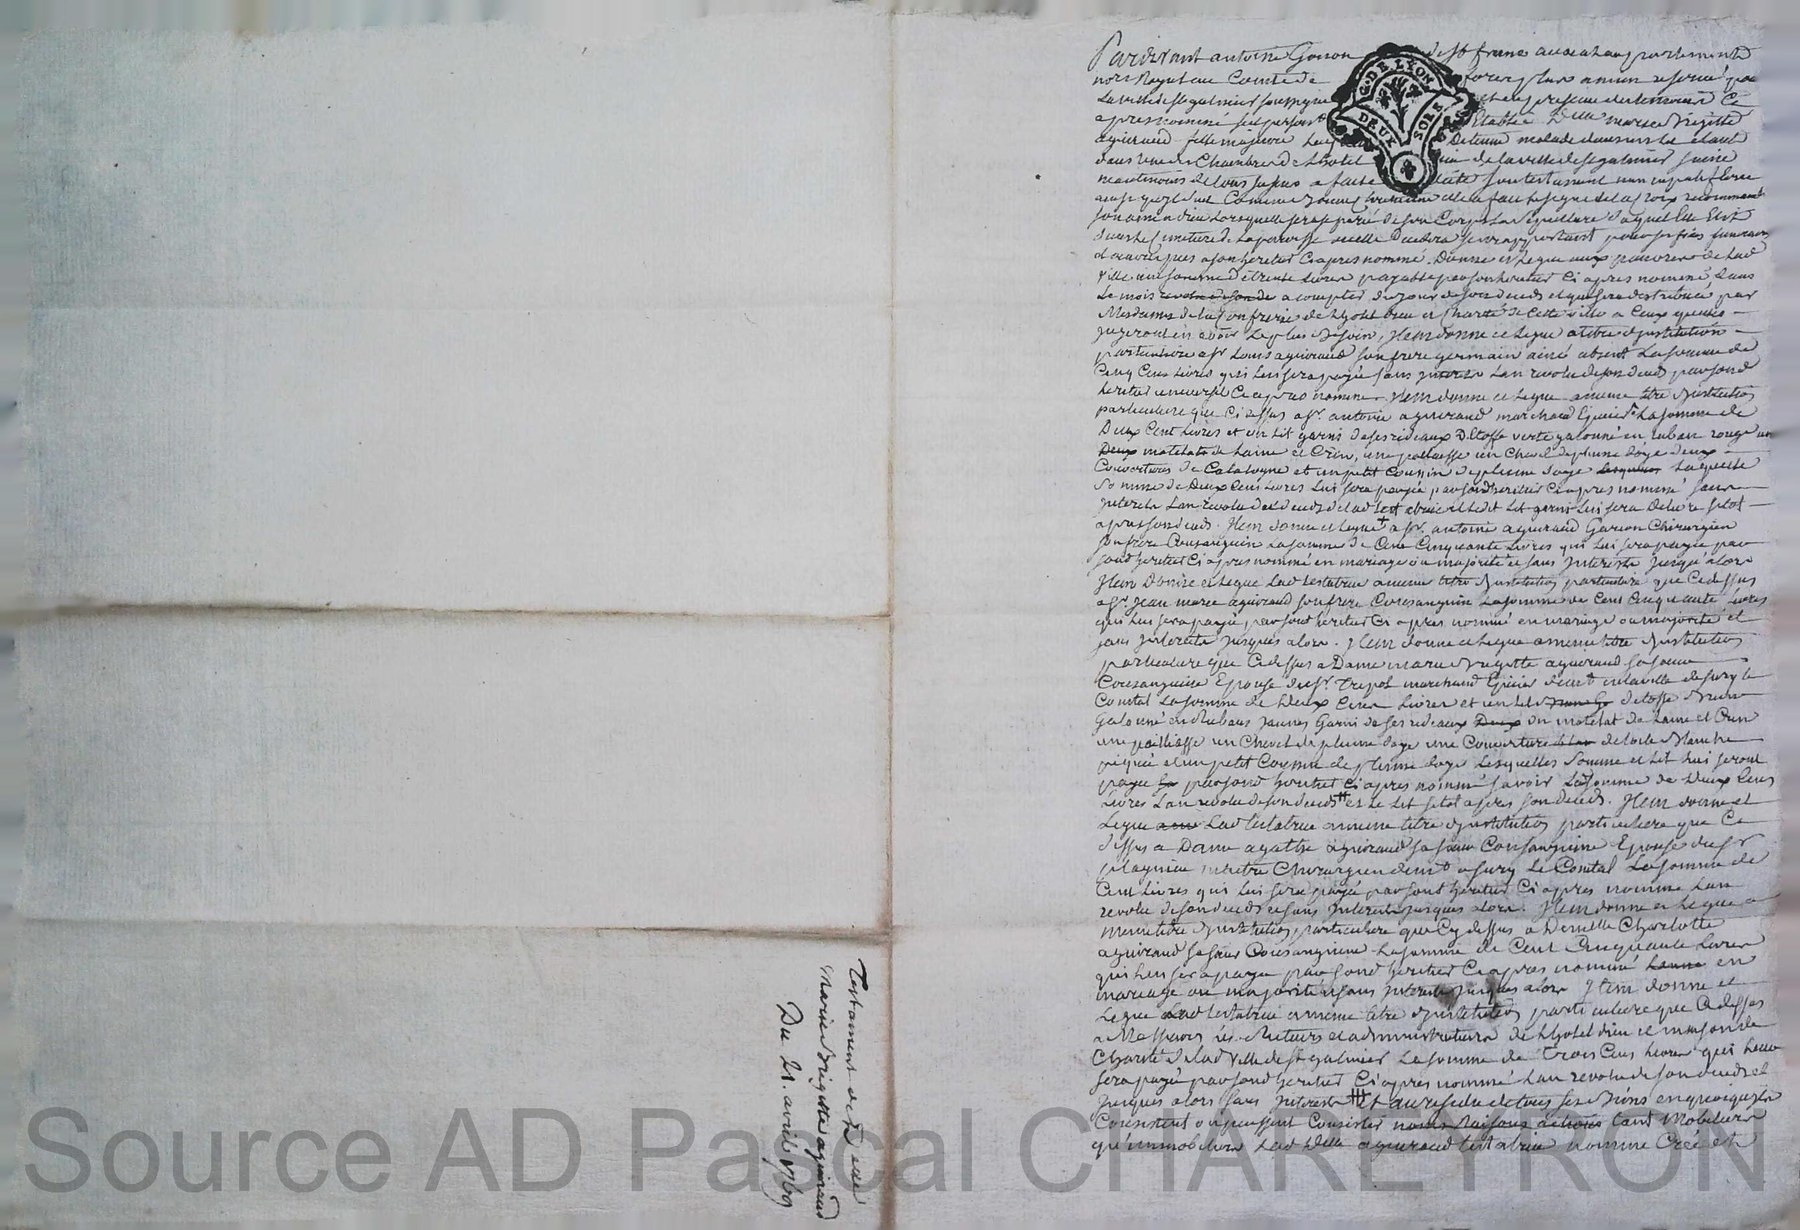 Pardevant antoine Gonon
nore Royal au Comté de forez plus ancien reservé pour
la ville de st galmier soussigné
apres nommé fut present Établie Delle marie Brigitte
aguiraud fille majeure Detenue malade dans un lit étant
dans une des Chambres de Lhotel dieu de la ville de st galmier saine
neantmoins de tous ses sens a fait son testament nuncupatif
ainsi qu'il suit Comme bonne chretienne elle a fait le signe de la Croix recommandé
son ame a dieu Lorsquelle sera separée de son Corps La sepulture duquel Elle Elit
dans le Cimetiere de la paroisse ou elle Decedera se rapportant pour ses frais funeraires
et œuvres pies a son heritier Ci apres nommé. Donne et Legue aux pauvres de lad
ville une somme de trente Livres payable par son heritier Ci apres nommé, dans
Le mois a compter du jour de son deceds et qui sera distribuée par
Mesdames de la Confrerie de Lhotel dieu et Charité de Cette ville a Ceux quelles
jugeront en avoir Le plus Besoin, Item donne et Legue a titre dinstitution
particuliere a sr Louis aguiraud son frere germain ainé absent La somme de
Cinq Cens Livres qui Lui sera payée sans interets Lan revolu de son deceds par sond
heritier universel Ci apres nommé. Item donne et Legue a meme titre dinstitution
particuliere que Ci dessus a sr. antoine aguiraud marchand Epicier La somme de
Deux Cent Livres et un Lit garni de ses rideaux D'Etoffe verte galonné en ruban rouge un
Deux matelats de Laine et Crin, une paillasse un Chevet de plume doye deux
Couvertures de Catalogne et un petit Coussin de plume doye lesquels Laquelle
somme de Deux Cens Livres Lui sera payée par sond heritier Ci apres nommé sans
interets Lan revolu du deceds de lad testatrice et led Lit garni Lui sera delivré sitot
apres son deceds. Item donne et Legue + a sr. antoine aguiraud Garcon Chirurgien
son frere Consanguin La somme de Cent Cinquante Livres qui Lui sera payée par
sond heritier Ci apres nommé en mariage ou majorité et sans Interets jusqu'alors
Item Donne et Legue Lad testatrice a meme titre dinstitution particuliere que Ci dessus
a sr. Jean marie aguiraud son frere Consanguin La somme de Cent Cinquante Livres
qui Lui sera payée par sond heritier Ci apres nommé en mariage ou majorité et
sans Interets jusques alors. Item donne et Legue a meme titre dinstitution
particuliere que Ci dessus a Dame marie Brigitte aguiraud sa soeur
Consanguine Epouse du sr. Trepol marchand Epicier demt en la ville de sury le
Comtal La somme de Deux Cens Livres et un Lit d'etoffe Brune
Galonné en Rubans jaunes Garni de ses rideaux Deux un matelat de Laine et Crin
une paillasse un Chevet de plume doye une Couverture de toile Blanche
piquée et un petit Coussin de plume doye Lesquelles Somme et Lit Lui seront
payée par sond heritier Ci apres nommé savoir La somme de Deux Cens
Livres Lan revolu de son deceds ++ et le Lit sitot apres son deceds. Item donne et
Legue Lad testatrice a meme titre dinstitution particuliere que Ci
dessus a Dame agathe aguiraud sa soeur Consanguine Epouse du sr
plagnieu maitre Chirurgien demt a sury Le Comtal La somme de
Cent Livres qui Lui sera payée par sond heritier Ci apres nommé Lan
revolu de son deceds et sans Interets jusques alors. Item donne et Legue a
meme titre dinstitution particuliere que Cy dessus a Demelle Charlotte
aguiraud sa soeur Consanguine La somme de Cent Cinquante Livres
qui Lui sera payée par sond heritier Ci apres nommé en
mariage ou majorité et sans Interets jusques alors Item donne et
Legue Lad testatrice a meme titre dinstitution particuliere que Ci dessus
a Messieurs les Recteurs et administrateurs de Lhotel dieu et maison de
Charité de lad Ville de st galmier La somme de Trois Cens Livres qui Leur
sera payée par sond heritier Ci apres nommé Lan revolu de son deceds et
jusques alors sans Interets +++ et au residu de tous ses Biens en quoi quils
Consistent ou puissent Consister noms Raisons actions tant Mobiliers
qu'immobiliers Lad Delle aguiraud testatrice nomme Créé et
Testament de Delle
Marie Brigitte aguiraud
Du 21. avril 1769
G. DE LYON
DEUX SOLS
Source AD Pascal CHAREYRON